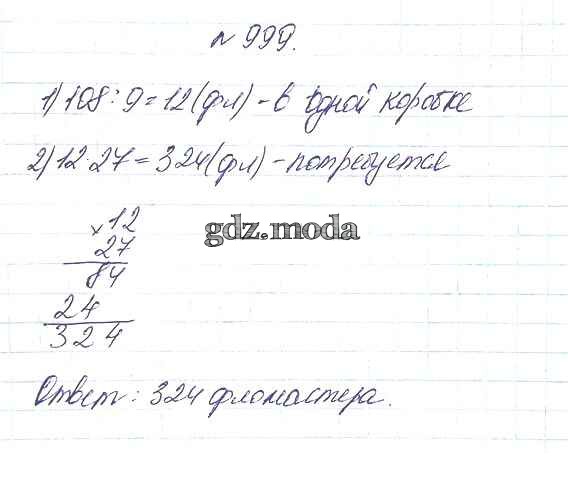 № 999.
1) 108 : 9 = 12 (фл) - в одной коробке
2) 12 · 27 = 324 (фл) - потребуется
× 12
27
84
24
324
gdz.moda
Ответ: 324 фломастера.